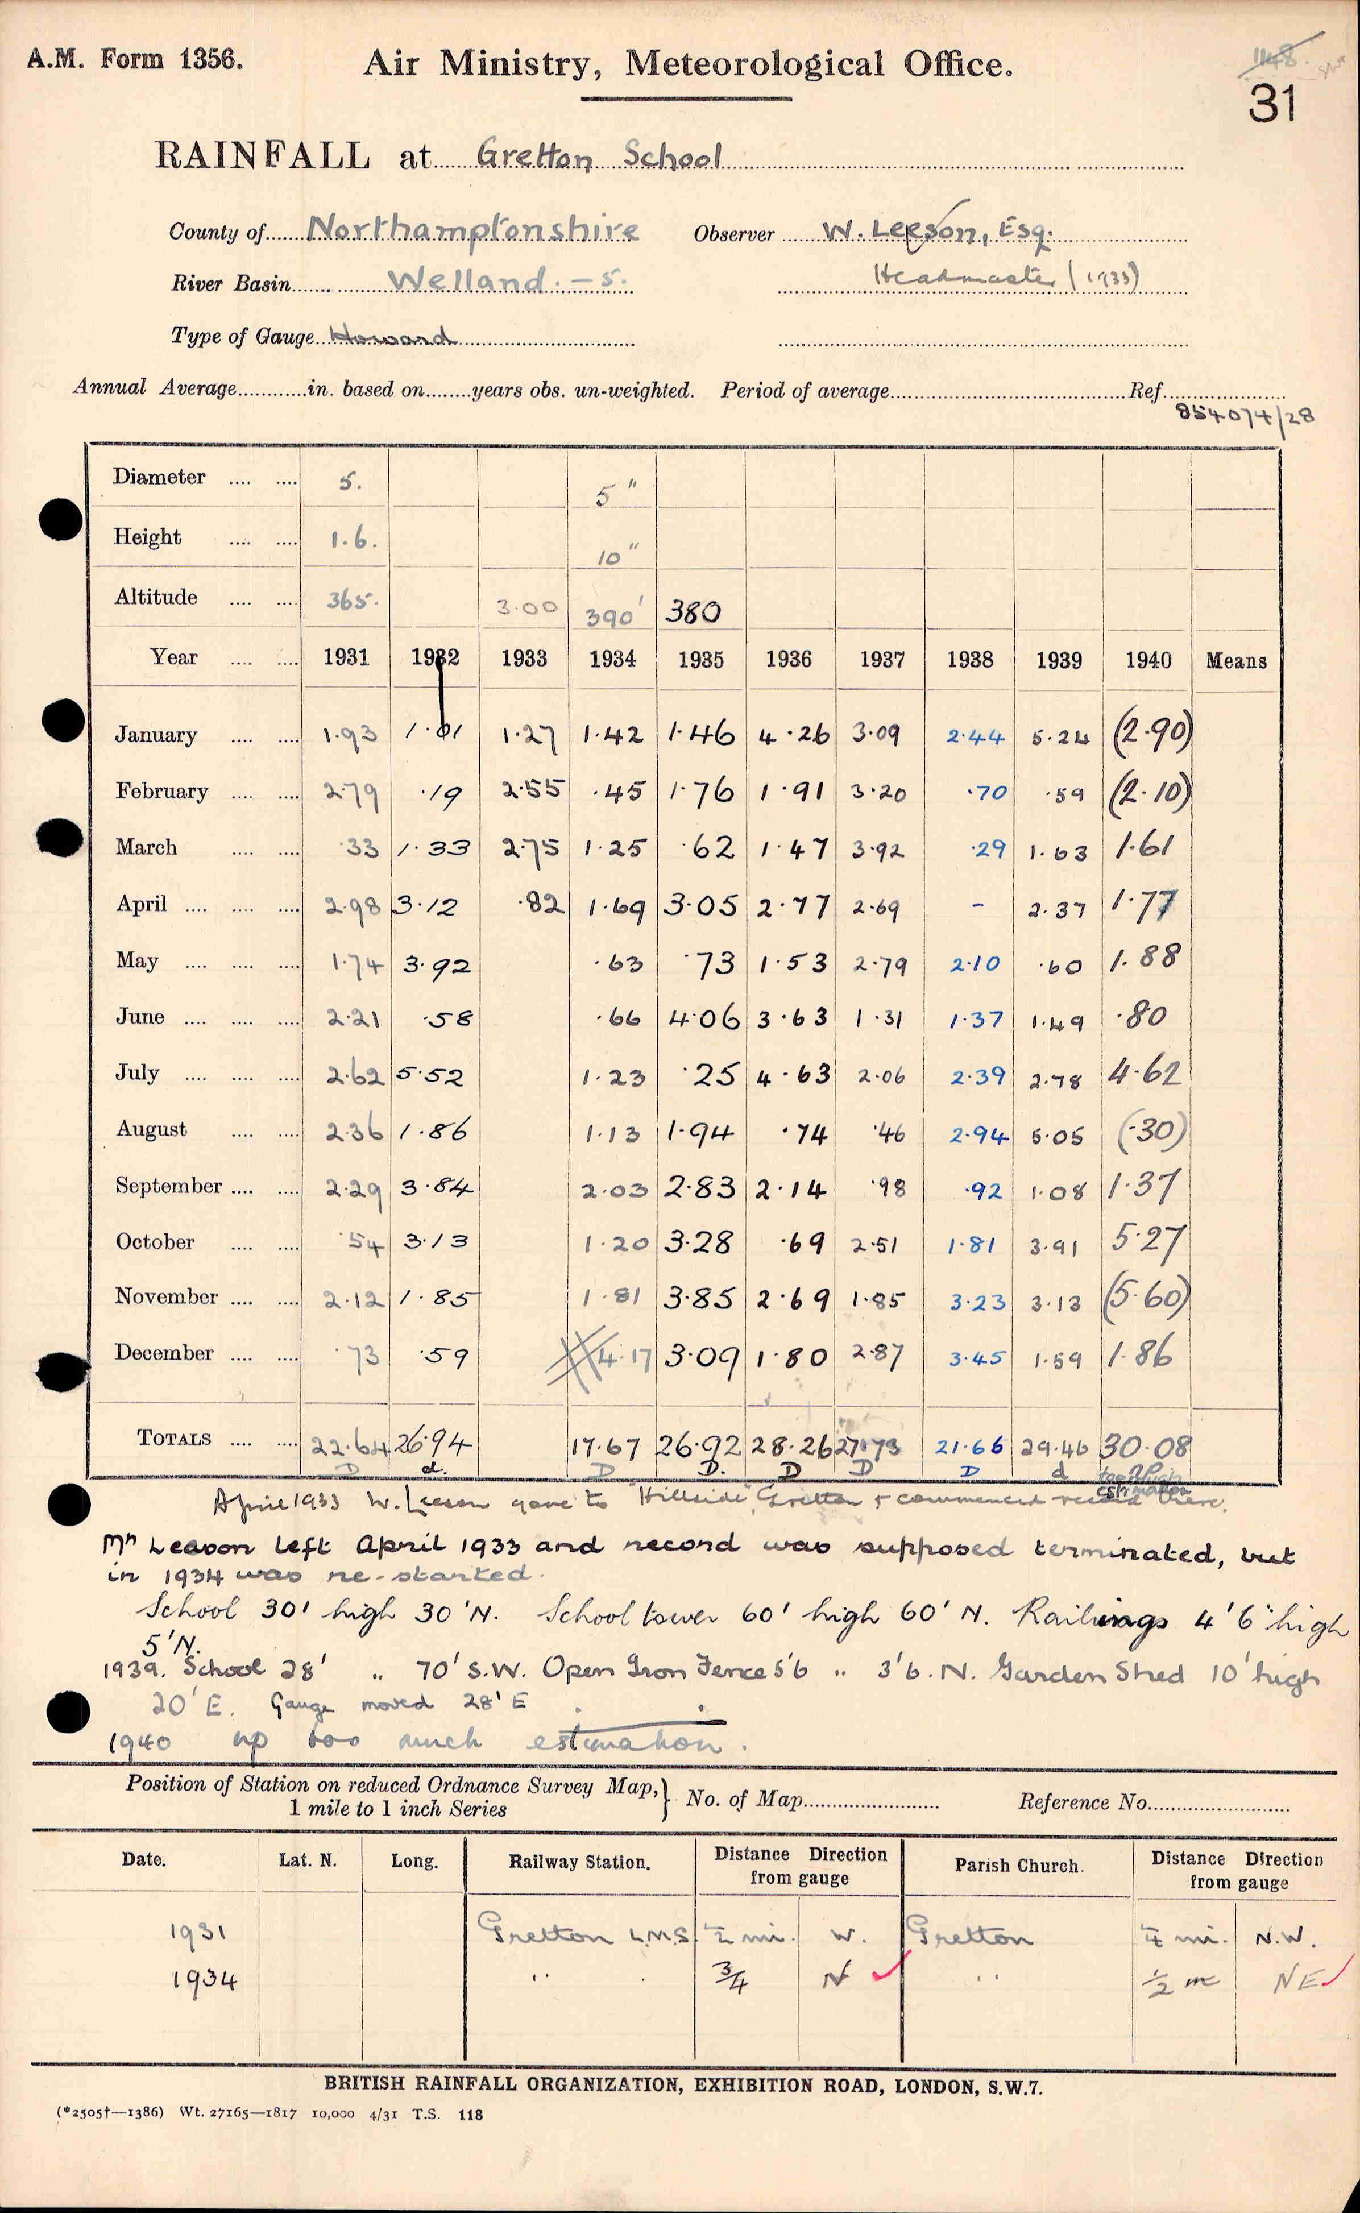 A.M. Form 1356.
Air Ministry, Meteorological Office.
148.
31
RAINFALL at Gretton School
County of Northamptonshire Observer W. Leeson, Esq.
River Basin Welland. – 5. Headmaster (1933)
Type of Gauge Howard
Annual Average in. based on years obs. un-weighted. Period of average Ref.
854074/28
Diameter 5. 5"
Height 1.6. 10"
Altitude 365. 3.00 390' 380
Year 1931 1932 1933 1934 1935 1936 1937 1938 1939 1940 Means
January 1.93 1.01 1.27 1.42 1.46 4.26 3.09 2.44 5.24 (2.90)
February 2.79 .19 2.55 .45 1.76 1.91 3.20 .70 .59 (2.10)
March .33 1.33 2.75 1.25 .62 1.47 3.92 .29 1.63 1.61
April 2.98 3.12 .82 1.69 3.05 2.77 2.69 – 2.37 1.77
May 1.74 3.92 .63 .73 1.53 2.79 2.10 .60 1.88
June 2.21 .58 .66 4.06 3.63 1.31 1.37 1.49 .80
July 2.62 5.52 1.23 .25 4.63 2.06 2.39 2.78 4.62
August 2.36 1.86 1.13 1.94 .74 .46 2.94 5.05 (.30)
September 2.29 3.84 2.03 2.83 2.14 .98 .92 1.08 1.37
October .54 3.13 1.20 3.28 .69 2.51 1.81 3.91 5.27
November 2.12 1.85 1.81 3.85 2.69 1.85 3.23 3.13 (5.60)
December .73 .59 4.17 3.09 1.80 2.87 3.45 1.59 1.86
TOTALS 22.64 26.94 17.67 26.92 28.26 27.73 21.66 29.46 30.08
D d. D D. D D D d too high estimation
April 1933 W. Leeson gone to "Hillside", Gretton & commenced record there.
Mr Leeson left April 1933 and record was supposed terminated, but
in 1934 was re-started.
School 30' high 30'N. School tower 60' high 60' N. Railings 4'6" high
5'N.
1939. School 28' " 70' S.W. Open Iron Fence 5'6 " 3'6. N. Garden Shed 10' high
20'E. Gauge moved 28'E
1940 up too much estimation.
Position of Station on reduced Ordnance Survey Map, } No. of Map Reference No.
1 mile to 1 inch Series
Date. Lat. N. Long. Railway Station. Distance Direction from gauge Parish Church. Distance Direction from gauge
1931 Gretton L.M.S. ½ mi. W. Gretton ¼ mi. N.W.
1934 " ¾ N " ½ m NE
BRITISH RAINFALL ORGANIZATION, EXHIBITION ROAD, LONDON, S.W.7.
(*2505†—1386) Wt. 27165—1817 10,000 4/31 T.S. 118